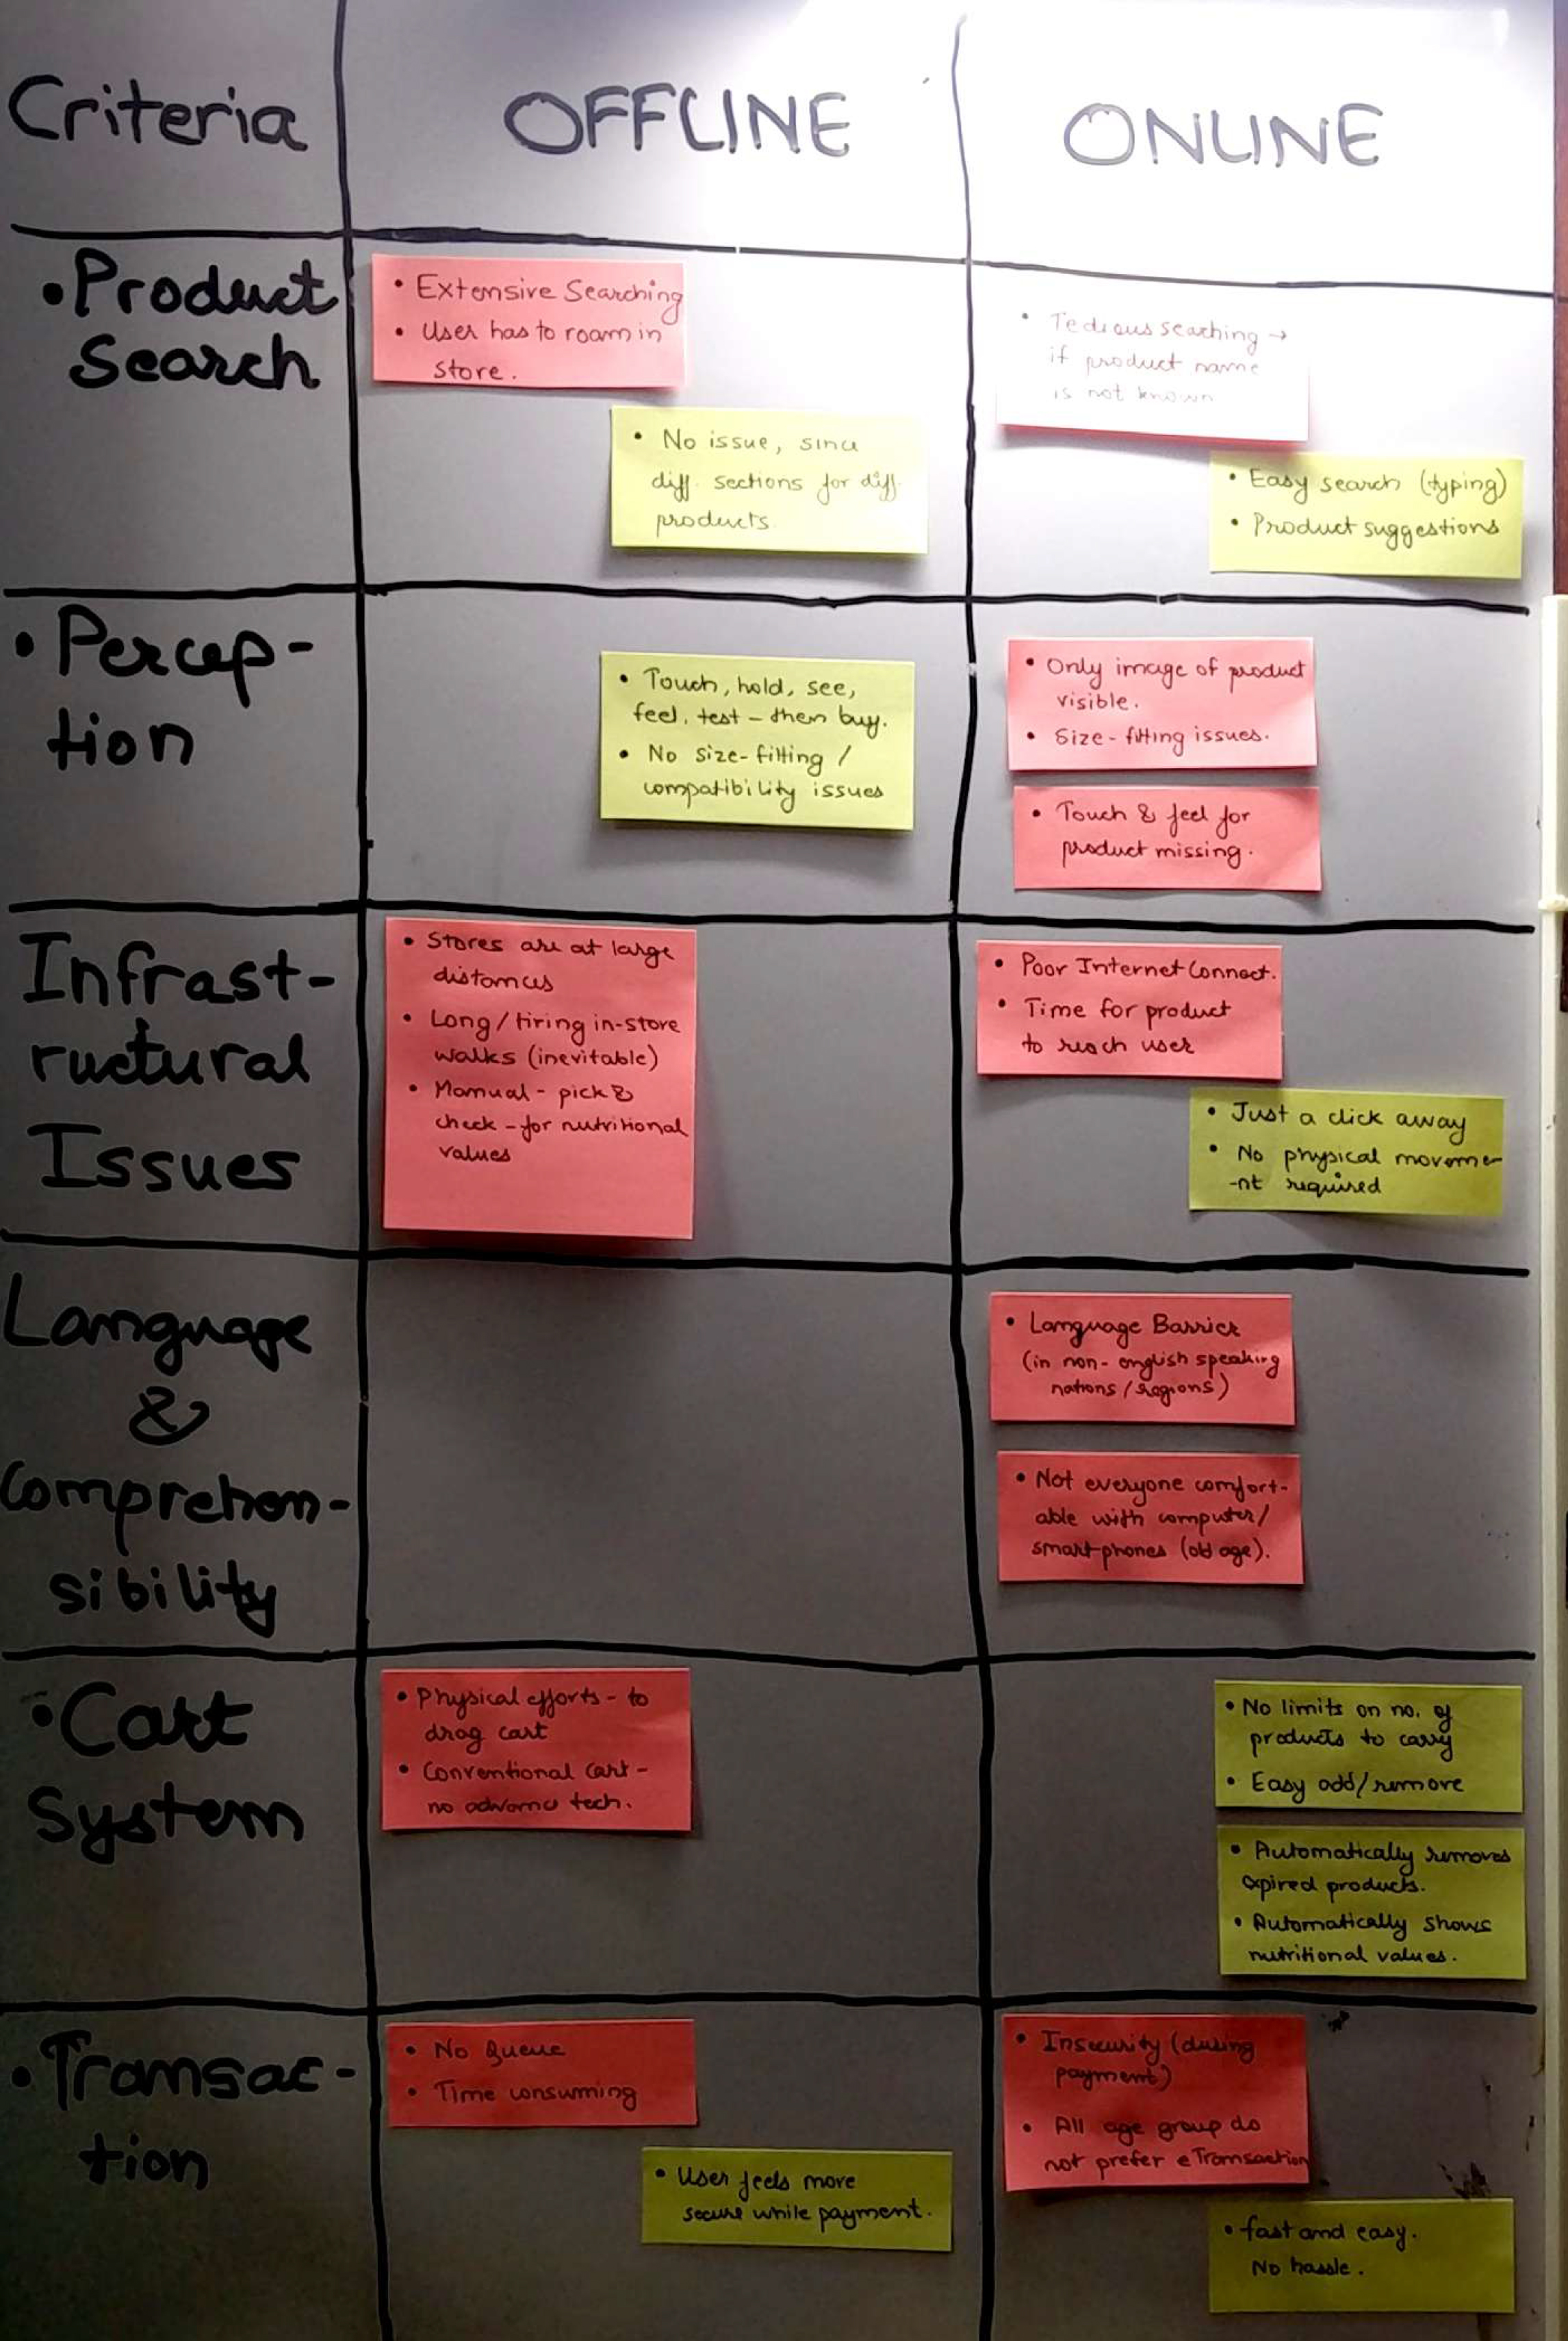 Criteria
OFFLINE
ONLINE
• Product
Search
• Extensive Searching
• User has to roam in
store.
• No issue, since
diff. sections for diff.
products
• Tedious searching →
if product name
is not known
• Easy search (typing)
• Product suggestions
• Percep-
tion
• Touch, hold, see,
feel, test – then buy.
• No size-fitting /
compatibility issues
• Only image of product
visible.
• Size-fitting issues.
• Touch & feel for
product missing.
Infrast-
ructural
Issues
• Stores are at large
distances
• Long/tiring in-store
walks (inevitable)
• Manual - pick &
check - for nutritional
values
• Poor Internet Connect.
• Time for product
to reach user
• Just a click away
• No physical moveme-
-nt required
Language
&
Comprehen-
sibility
• Language Barrier
(in non-english speaking
nations/regions)
• Not everyone comfort-
able with computer/
smartphones (old age).
• Cart
System
• Physical efforts - to
drag cart
• Conventional Cart -
no advance tech.
• No limits on no. of
products to carry
• Easy add/remove
• Automatically removes
expired products.
• Automatically shows
nutritional values.
• Transac-
tion
• No Queue
• Time consuming
• User feels more
secure while payment.
• Insecurity (during
payment)
• All age group do
not prefer eTransaction
• fast and easy.
No hassle.